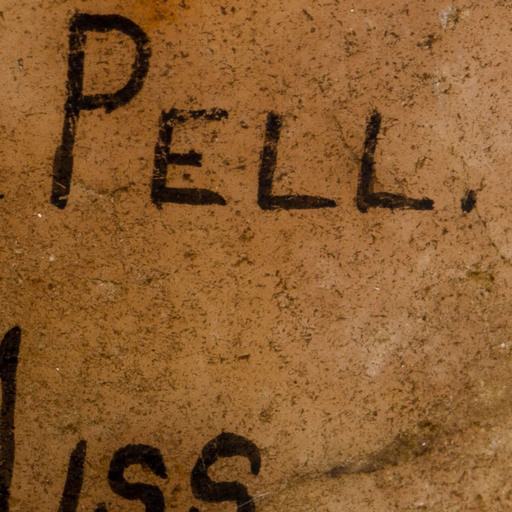 PELL.
Miss